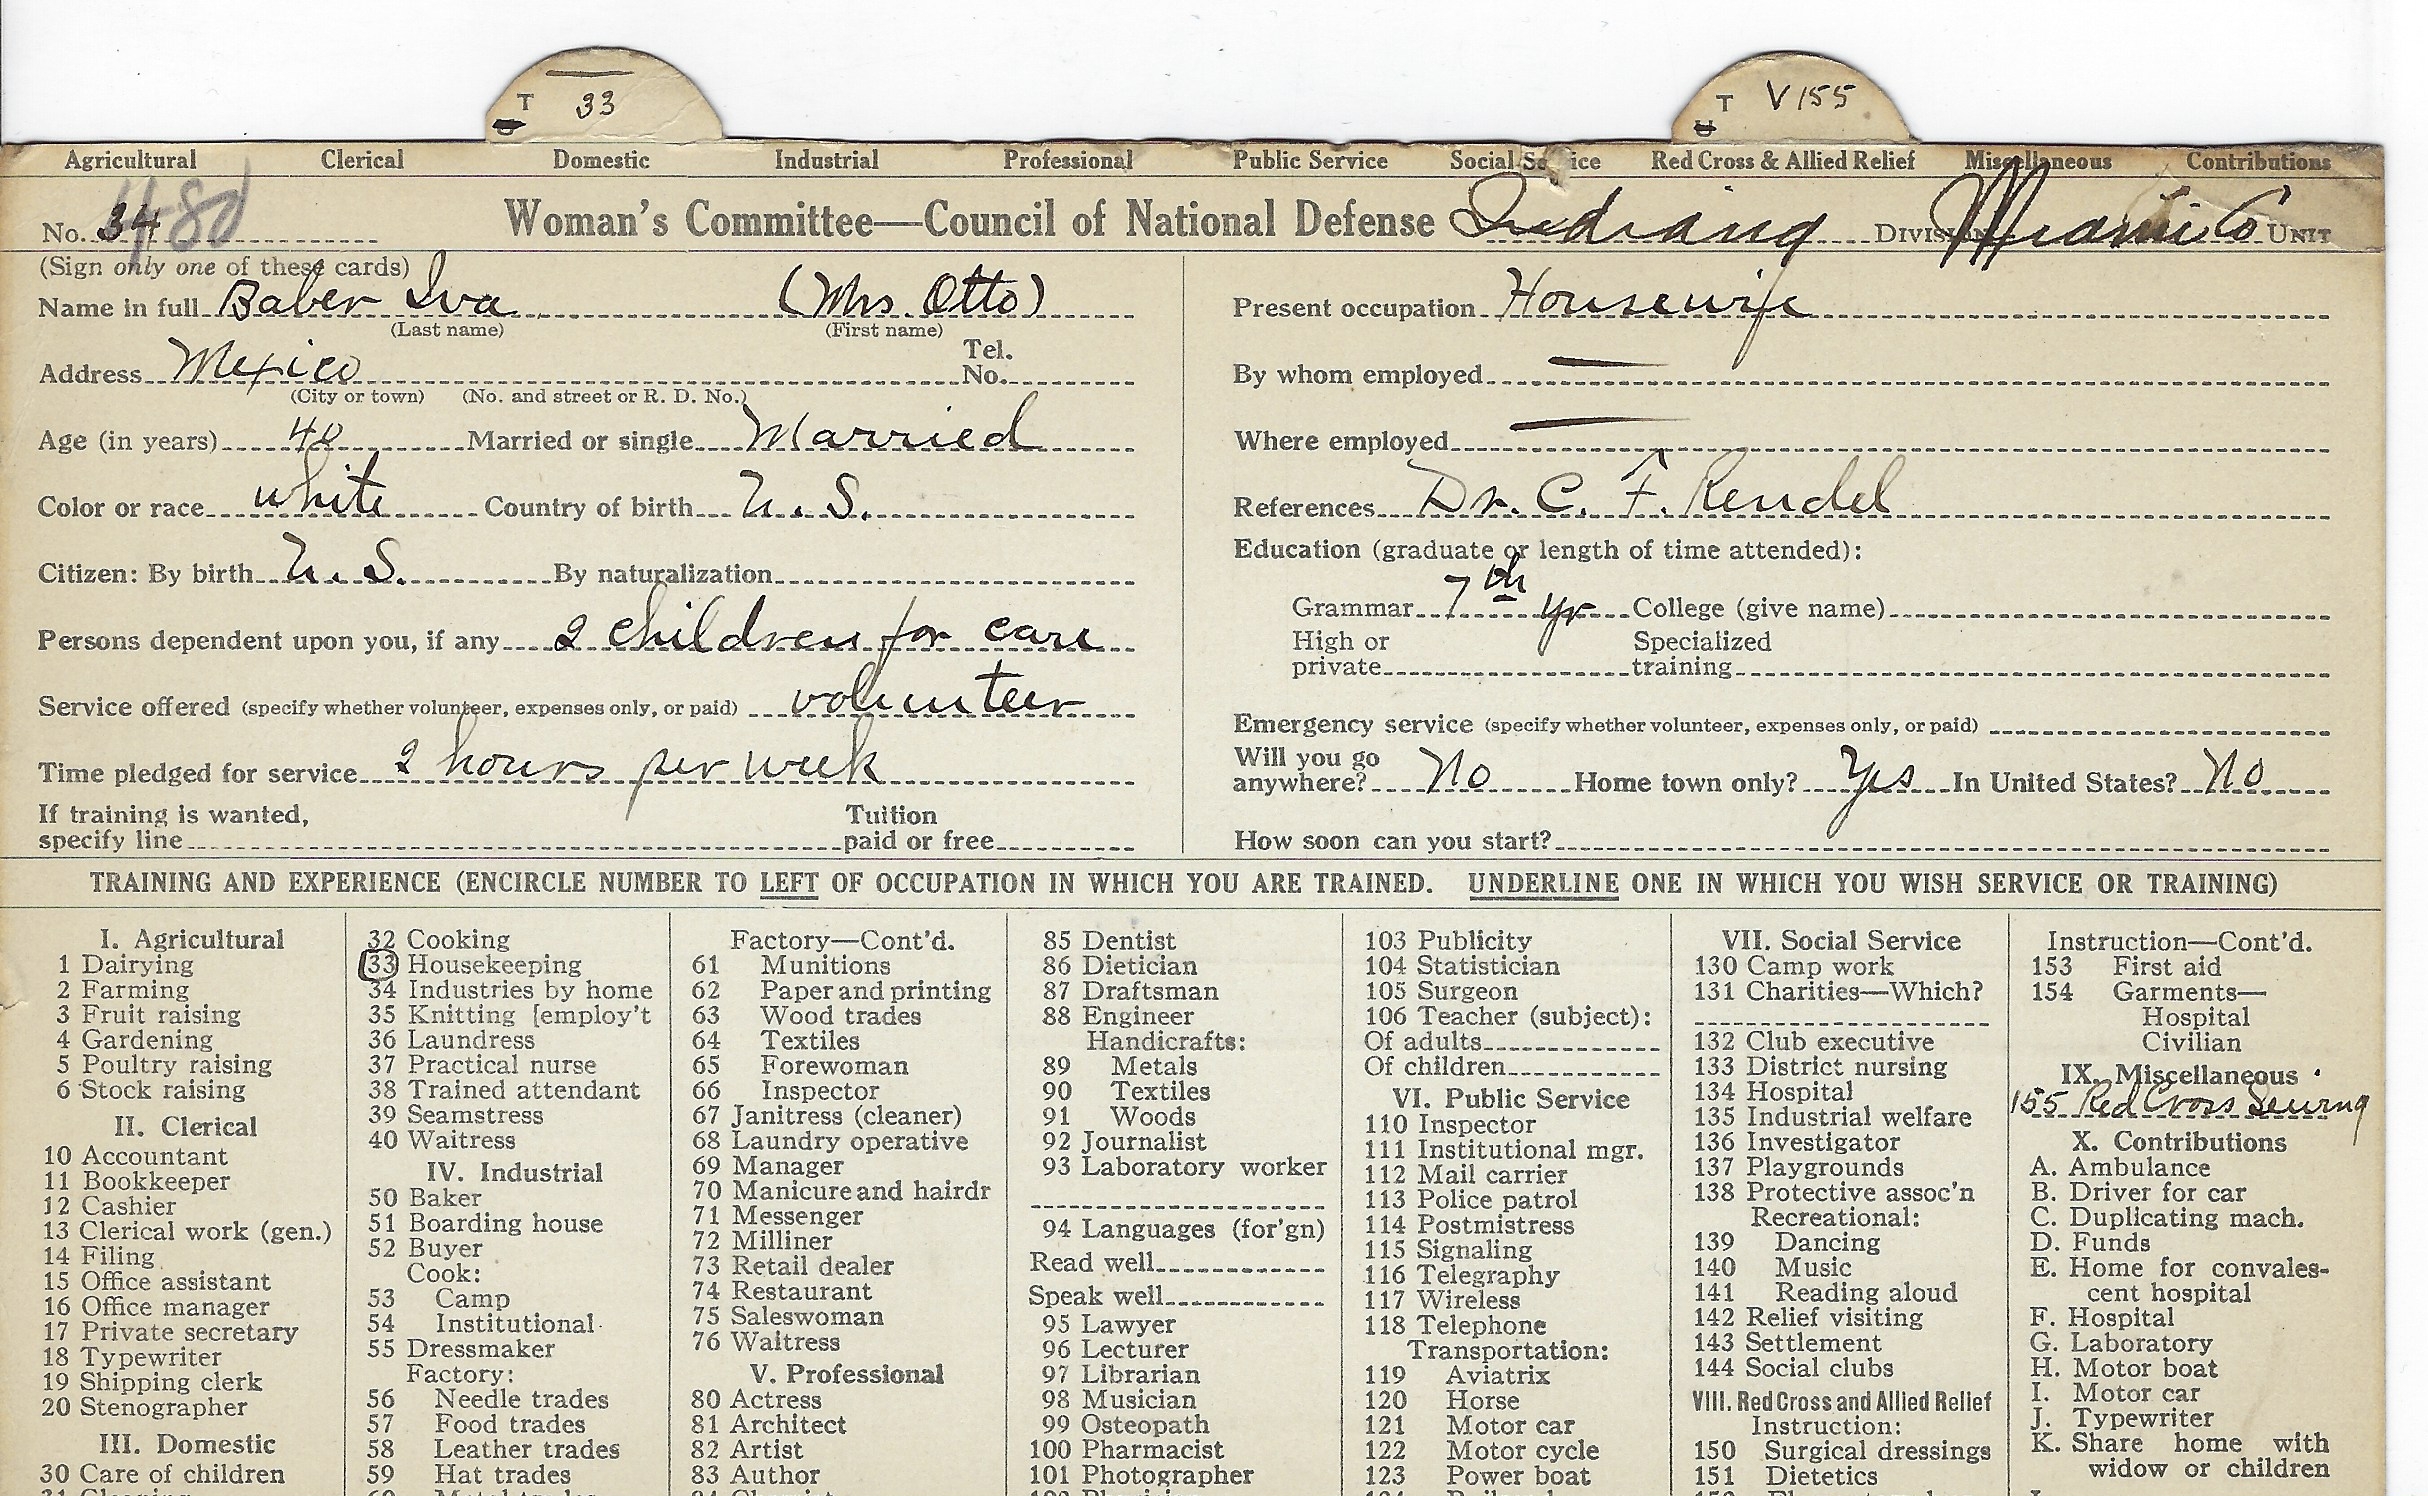 T 33
T V155
Agricultural Clerical Domestic Industrial Professional Public Service Social Service Red Cross & Allied Relief Miscellaneous Contributions
No. 34 480 Woman's Committee—Council of National Defense Indiana DIVISION Miami Co UNIT
(Sign only one of these cards)
Name in full Baber Iva (Mrs. Otto)
(Last name) (First name)
Address Mexico Tel. No.
(City or town) (No. and street or R. D. No.)
Age (in years) 40 Married or single Married
Color or race white Country of birth U. S.
Citizen: By birth U. S. By naturalization
Persons dependent upon you, if any 2 children for care
Service offered (specify whether volunteer, expenses only, or paid) volunteer
Time pledged for service 2 hours per week
If training is wanted,
specify line Tuition paid or free
Present occupation Housewife
By whom employed —
Where employed —
References Dr. C. F. Rendel
Education (graduate or length of time attended):
Grammar 7th yr College (give name)
High or private Specialized training
Emergency service (specify whether volunteer, expenses only, or paid)
Will you go
anywhere? No Home town only? Yes In United States? No
How soon can you start?
TRAINING AND EXPERIENCE (ENCIRCLE NUMBER TO LEFT OF OCCUPATION IN WHICH YOU ARE TRAINED. UNDERLINE ONE IN WHICH YOU WISH SERVICE OR TRAINING)
I. Agricultural
1 Dairying
2 Farming
3 Fruit raising
4 Gardening
5 Poultry raising
6 Stock raising
II. Clerical
10 Accountant
11 Bookkeeper
12 Cashier
13 Clerical work (gen.)
14 Filing
15 Office assistant
16 Office manager
17 Private secretary
18 Typewriter
19 Shipping clerk
20 Stenographer
III. Domestic
30 Care of children
32 Cooking
33 Housekeeping
34 Industries by home
35 Knitting [employ't
36 Laundress
37 Practical nurse
38 Trained attendant
39 Seamstress
40 Waitress
IV. Industrial
50 Baker
51 Boarding house
52 Buyer
Cook:
53 Camp
54 Institutional
55 Dressmaker
Factory:
56 Needle trades
57 Food trades
58 Leather trades
59 Hat trades
Factory—Cont'd.
61 Munitions
62 Paper and printing
63 Wood trades
64 Textiles
65 Forewoman
66 Inspector
67 Janitress (cleaner)
68 Laundry operative
69 Manager
70 Manicure and hairdr
71 Messenger
72 Milliner
73 Retail dealer
74 Restaurant
75 Saleswoman
76 Waitress
V. Professional
80 Actress
81 Architect
82 Artist
83 Author
85 Dentist
86 Dietician
87 Draftsman
88 Engineer
Handicrafts:
89 Metals
90 Textiles
91 Woods
92 Journalist
93 Laboratory worker
94 Languages (for'gn)
Read well
Speak well
95 Lawyer
96 Lecturer
97 Librarian
98 Musician
99 Osteopath
100 Pharmacist
101 Photographer
103 Publicity
104 Statistician
105 Surgeon
106 Teacher (subject):
Of adults
Of children
VI. Public Service
110 Inspector
111 Institutional mgr.
112 Mail carrier
113 Police patrol
114 Postmistress
115 Signaling
116 Telegraphy
117 Wireless
118 Telephone
Transportation:
119 Aviatrix
120 Horse
121 Motor car
122 Motor cycle
123 Power boat
VII. Social Service
130 Camp work
131 Charities—Which?
132 Club executive
133 District nursing
134 Hospital
135 Industrial welfare
136 Investigator
137 Playgrounds
138 Protective assoc'n
Recreational:
139 Dancing
140 Music
141 Reading aloud
142 Relief visiting
143 Settlement
144 Social clubs
VIII. Red Cross and Allied Relief
Instruction:
150 Surgical dressings
151 Dietetics
Instruction—Cont'd.
153 First aid
154 Garments—
Hospital
Civilian
IX. Miscellaneous
155 Red Cross Sewing
X. Contributions
A. Ambulance
B. Driver for car
C. Duplicating mach.
D. Funds
E. Home for convales-
cent hospital
F. Hospital
G. Laboratory
H. Motor boat
I. Motor car
J. Typewriter
K. Share home with
widow or children